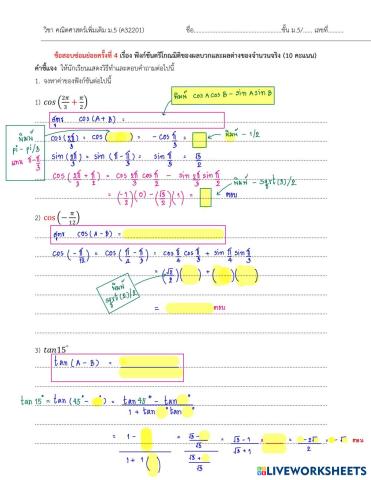 วิชา คณิตศาสตร์เพิ่มเติม ม.5 (ค32201) ชื่อ..........ชั้น ม.5/...... เลขที่.........
ข้อสอบซ่อมย่อยครั้งที่ 4 เรื่อง ฟังก์ชันตรีโกณมิติของผลบวกและผลต่างของจำนวนจริง (10 คะแนน)
คำชี้แจง ให้นักเรียนแสดงวิธีทำและตอบคำถามต่อไปนี้
1. จงหาค่าของฟังก์ชันต่อไปนี้
1) cos(2π/3 + π/2)
พิมพ์ cos A cos B - sin A sin B
สูตร cos(A+B) =
พิมพ์ pi - pi/3 แทน π - π/3
cos(2π/3) = cos( ) = -cos π/3 = พิมพ์ -1/2
sin(2π/3) = sin(π - π/3) = sin π/3 = √3/2
cos(2π/3 + π/2) = cos 2π/3 cos π/2 - sin 2π/3 sin π/2
พิมพ์ -sqrt(3)/2
= (-1/2)(0) - (√3/2)(1) = ตอบ
2) cos(-π/12)
สูตร cos(A-B) =
cos(-π/12) = cos(π/4 - π/3) = cos π/4 cos π/3 + sin π/4 sin π/3
พิมพ์ sqrt(2)/2
= (√2/2)( ) + ( )( )
= ตอบ
3) tan15°
tan(A-B) =
tan 15° = tan(45° - ) = tan 45° - tan / 1 + tan tan
= 1 - / 1 + 1( ) = √3 - / √3 / √3 + / √3 = √3 - 1 / √3 + 1 × = - 2√3 / 2 = - √ ตอบ
LIVEWORKSHEETS